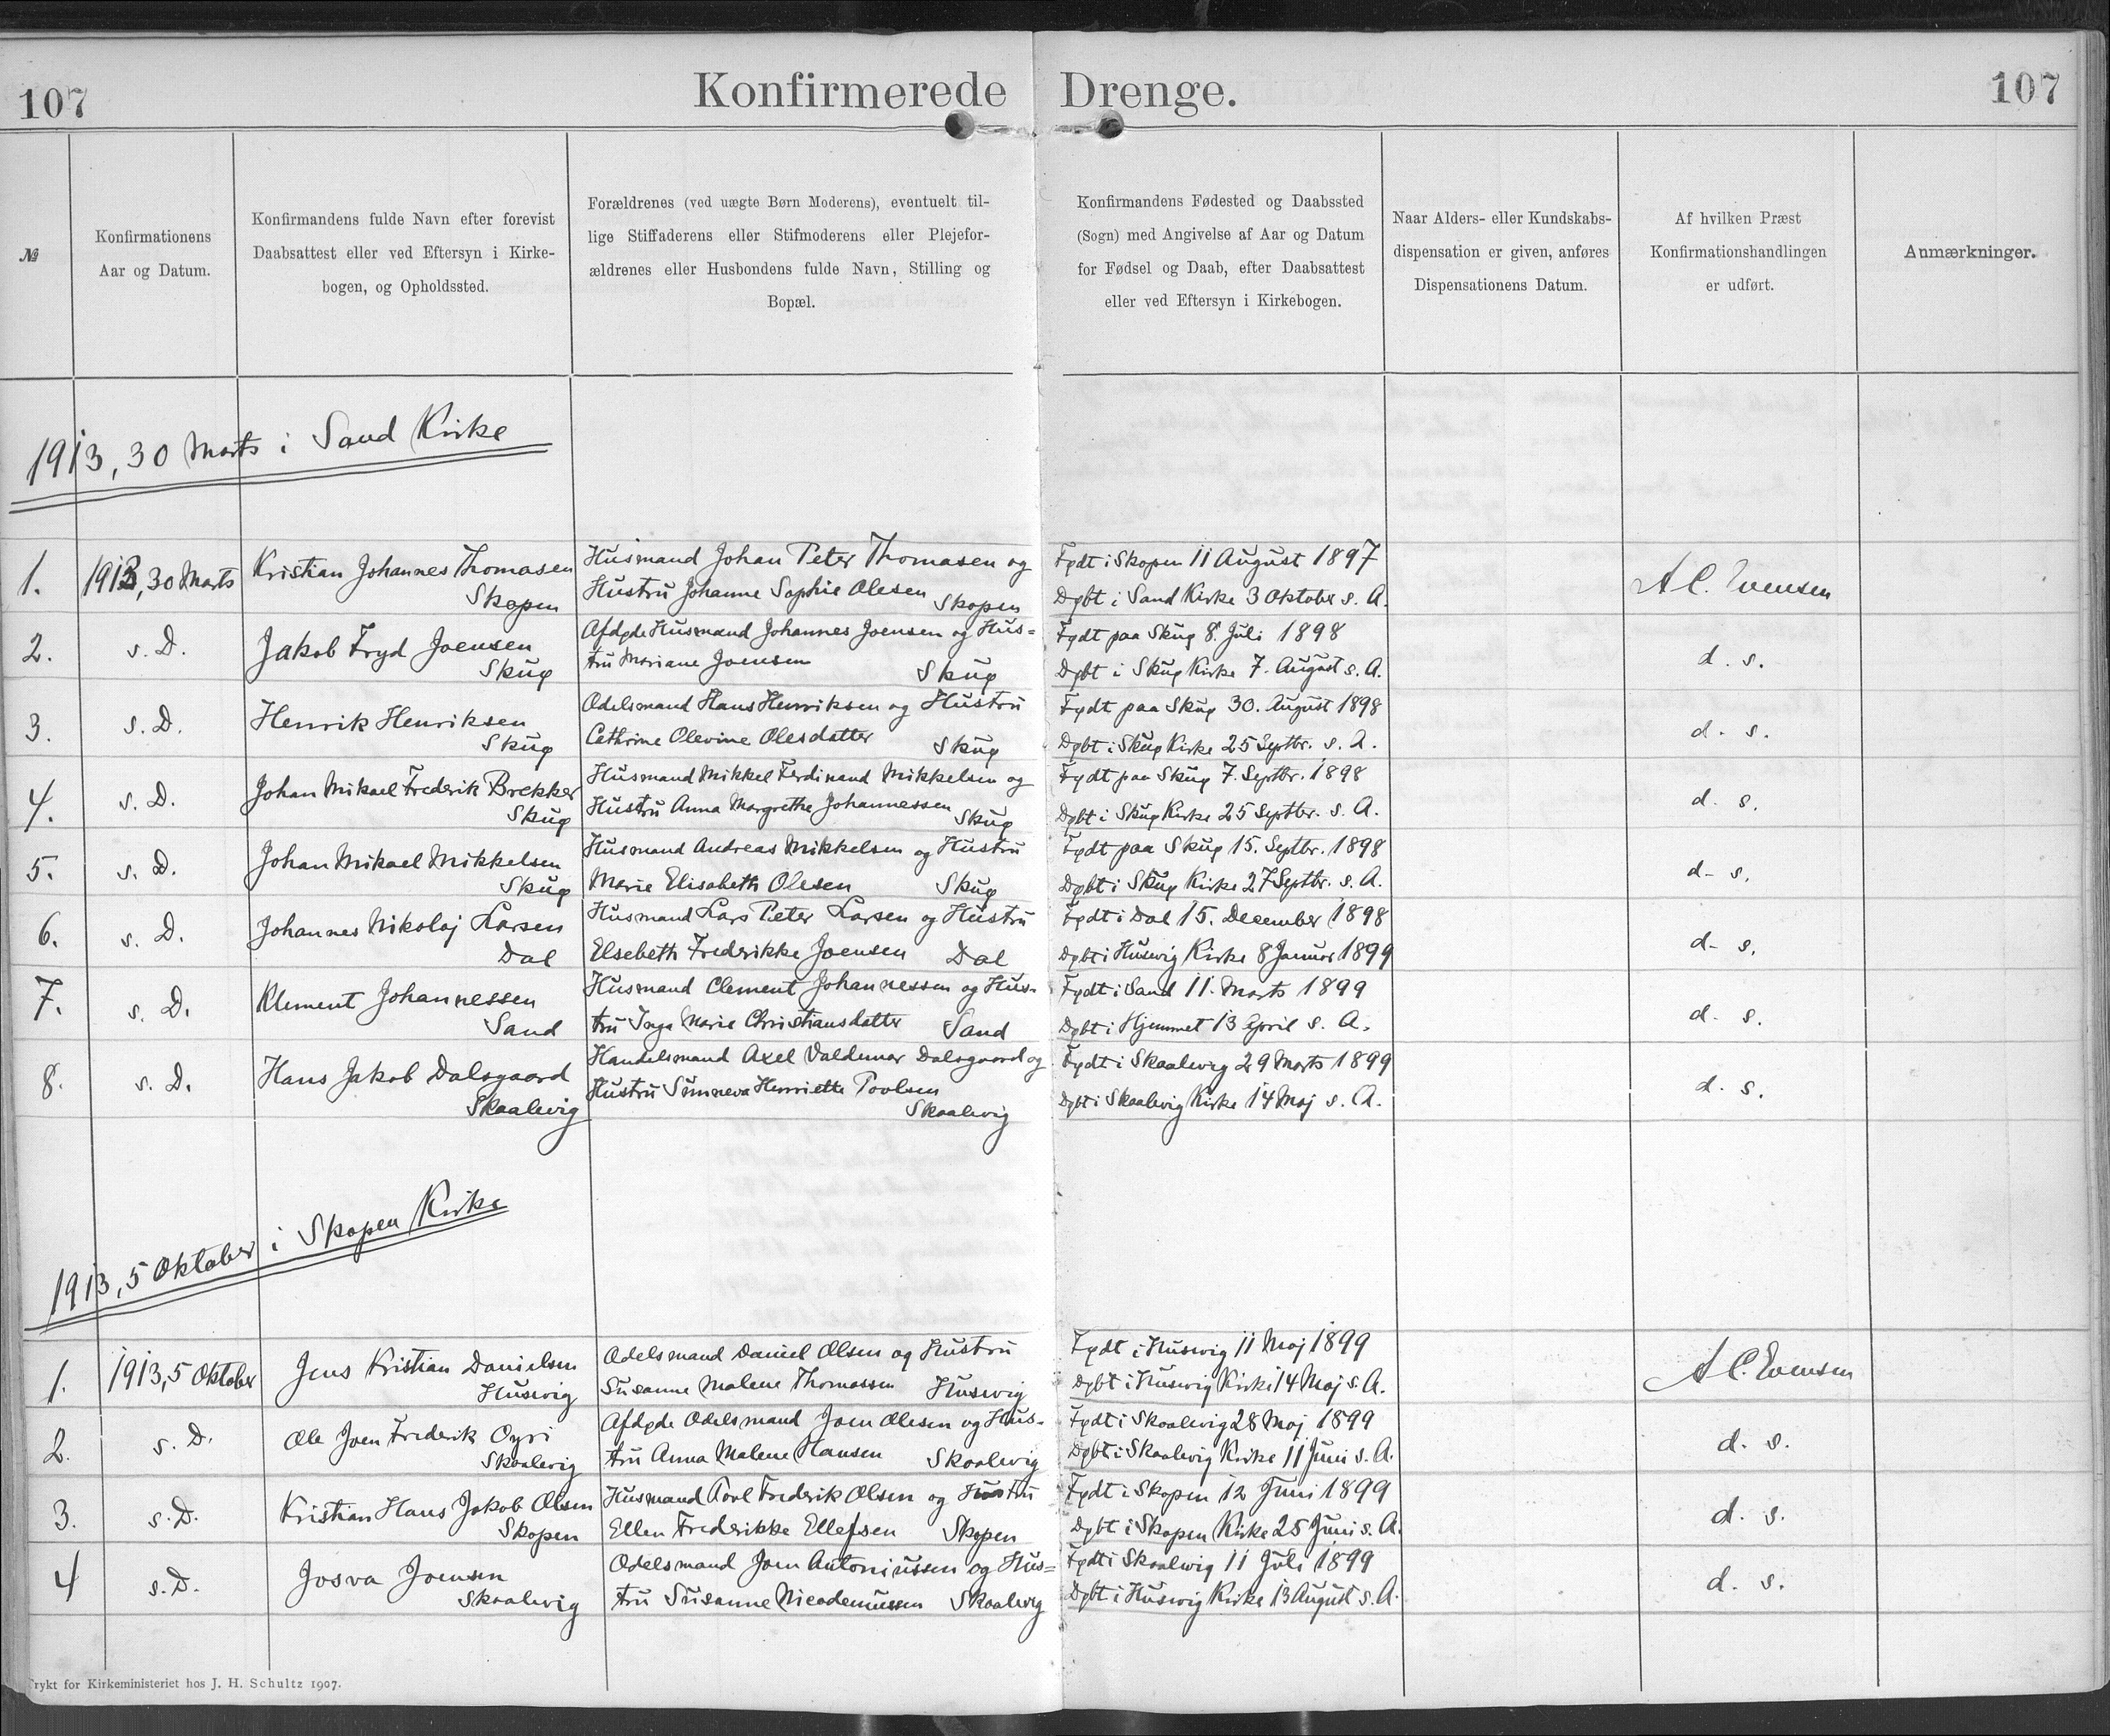 107
Konfirmerede Drenge.
107
№
Konfirmationens
Aar og Datum.
Konfirmandens fulde Navn efter forevist
Daabsattest eller ved Eftersyn i Kirke-
bogen, og Opholdssted.
Forældrenes (ved uægte Børn Moderens), eventuelt til-
lige Stiffaderens eller Stifmoderens eller Plejefor-
ældrenes eller Husbondens fulde Navn, Stilling og
Bopæl.
Konfirmandens Fødested og Daabssted
(Sogn) med Angivelse af Aar og Datum
for Fødsel og Daab, efter Daabsattest
eller ved Eftersyn i Kirkebogen.
Naar Alders- eller Kundskabs-
dispensation er given, anføres
Dispensationens Datum.
Af hvilken Præst
Konfirmationshandlingen
er udført.
Anmærkninger.
1913, 30 Marts i Sand Kirke
1. 1913, 30 Marts Kristian Johannes Thomasen Husmand Johan Peter Thomasen og Født i Skopen 11 August 1897 A C. Evensen
Skopen Hustru Johanne Sophie Olesen Skopen Døbt i Sand Kirke 3 Oktober s. A.
2. s. D. Jakob Fryd Joensen Afdøde Husmand Johannes Joensen og Hus= Født paa Skuø 8. Juli 1898 d. s.
Skuø tru Mariane Joensen Skuø Døbt i Skuø Kirke 7. August s. A.
3. s. D. Henrik Henriksen Odelsmand Hans Henriksen og Hustru Født paa Skuø 30. August 1898 d. s.
Skuø Cathrine Olevine Olesdatter Skuø Døbt i Skuø Kirke 25 Septbr. s. A.
4. s. D. Johan Mikael Frederik Brekker Husmand Mikkel Ferdinand Mikkelsen og Født paa Skuø 7. Septbr. 1898 d. s.
Skuø Hustru Anna Margrethe Johannessen Skuø Døbt i Skuø Kirke 25 Septbr. s. A.
5. s. D. Johan Mikael Mikkelsen Husmand Andreas Mikkelsen og Hustru Født paa Skuø 15. Septbr. 1898 d- s.
Skuø Marie Elisabeth Olesen Skuø Døbt i Skuø Kirke 27 Septbr. s. A.
6. s. D. Johannes Nikolaj Larsen Husmand Lars Peter Larsen og Hustru Født i Dal 15. December 1898 d- s.
Dal Elsebeth Frederikke Joensen Dal Døbt i Huswig Kirke 8 Januar 1899
7. s. D. Klement Johannessen Husmand Clement Johannessen og Hus- Født i Sand 11. Marts 1899 d- s.
Sand tru Inga Marie Christiansdatter Sand Døbt i Hjemmet 13 April s. A.
8. s. D. Hans Jakob Dalsgaard Handelsmand Axel Valdemar Dalsgaard og Født i Skaalevig 29 Marts 1899 d. s.
Skaalevig Hustru Sunneva Henriette Poulsen Skaalevig Døbt i Skaalevig Kirke 14 Maj s. A.
1913, 5 Oktober i Skopen Kirke
1. 1913, 5 Oktober Jens Kristian Danielsen Odelsmand Daniel Olsen og Hustru Født i Huswig 11 Maj 1899 A C. Evensen
Huswig Susanne Malene Thomassen Huswig Døbt i Huswig Kirke 14 Maj s. A.
2. s. D. Ole Joen Frederik Oyri Afdøde Odelsmand Joen Olesen og Hus- Født i Skaalevig 28 Maj 1899 d. s.
Skaalevig tru Anna Malene Hansen Skaalevig Døbt i Skaalevig Kirke 11 Juni s. A.
3. s. D. Kristian Hans Jakob Olsen Husmand Poul Frederik Olsen og Hustru Født i Skopen 12 Juni 1899 d. s.
Skopen Ellen Frederikke Ellefsen Skopen Døbt i Skopen Kirke 25 Juni s. A.
4 s. D. Josva Joensen Odelsmand Joen Antoniussen og Hus= Født i Skaalevig 11 Juli 1899 d. s.
Skaalevig tru Susanne Nicodemussen Skaalevig Døbt i Huswig Kirke 13 August s. A.
Trykt for Kirkeministeriet hos J. H. Schultz 1907.